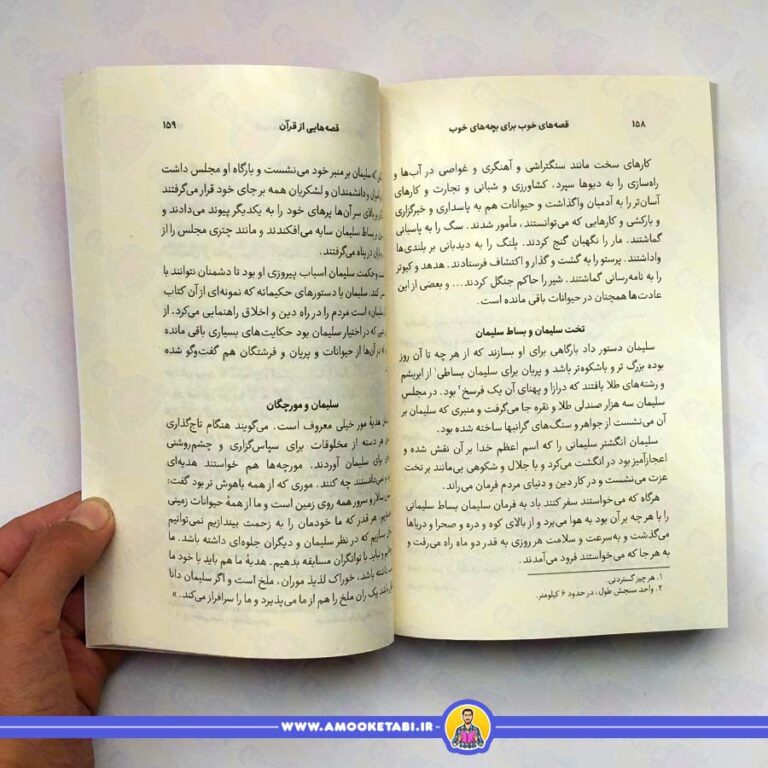 ۱۵۸
قصه‌های خوب برای بچه‌های خوب
کارهای سخت مانند سنگتراشی و آهنگری و غواصی در آب‌ها و
راه‌سازی را به دیوها سپرد، کشاورزی و شبانی و تجارت و کارهای
آسان‌تر را به آدمیان واگذاشت و حیوانات هم به پاسداری و خبرگزاری
و بارکشی و کارهایی که می‌توانستند، مأمور شدند. سگ را به پاسبانی
گماشتند. مار را نگهبان گنج کردند. پلنگ را به دیدبانی بر بلندی‌ها
واداشتند. پرستو را به گشت و گذار و اکتشاف فرستادند. هدهد و کبوتر
را به نامه‌رسانی گماشتند. شیر را حاکم جنگل کردند... و بعضی از این
عادت‌ها همچنان در حیوانات باقی مانده است.
تخت سلیمان و بساط سلیمان
سلیمان دستور داد بارگاهی برای او بسازند که از هر چه تا آن روز
بوده بزرگ تر و باشکوه‌تر باشد و پریان برای سلیمان بساطی۱ از ابریشم
و رشته‌های طلا بافتند که درازا و پهنای آن یک فرسخ۲ بود. در مجلس
سلیمان سه هزار صندلی طلا و نقره جا می‌گرفت و منبری که سلیمان بر
آن می‌نشست از جواهر و سنگ‌های گرانبها ساخته شده بود.
سلیمان انگشتر سلیمانی را که اسم اعظم خدا بر آن نقش شده و
اعجازآمیز بود در انگشت می‌کرد و با جلال و شکوهی بی‌مانند بر تخت
عزت می‌نشست و در کار دین و دنیای مردم فرمان می‌راند.
هرگاه که می‌خواستند سفر کنند باد به فرمان سلیمان بساط سلیمانی
را با هر چه بر آن بود به هوا می‌برد و از بالای کوه و دره و صحرا و دریاها
می‌گذشت و به‌سرعت و سلامت هر روزی به قدر دو ماه راه می‌رفت و
به هر جا که می‌خواستند فرود می‌آمدند.
۱. هر چیز گستردنی.
۲. واحد سنجش طول، در حدود ۶ کیلومتر.
قصه‌هایی از قرآن
۱۵۹
که سلیمان بر منبر خود می‌نشست و بارگاه او مجلس داشت
و دانشمندان و لشکریان همه بر جای خود قرار می‌گرفتند
و بالای سر آن‌ها پرهای خود را به یکدیگر پیوند می‌دادند و
بساط سلیمان سایه می‌افکندند و مانند چتری مجلس را از
در پناه می‌گرفتند.
و حکمت سلیمان اسباب پیروزی او بود تا دشمنان نتوانند با
کند. سلیمان با دستورهای حکیمانه که نمونه‌ای از آن کتاب
است مردم را در راه دین و اخلاق راهنمایی می‌کرد. از
که در اختیار سلیمان بود حکایت‌های بسیاری باقی مانده
در آن‌ها از حیوانات و پریان و فرشتگان هم گفت‌وگو شده
سلیمان و مورچگان
هدیهٔ مور خیلی معروف است. می‌گویند هنگام تاج‌گذاری
هر دسته از مخلوقات برای سپاس‌گزاری و چشم‌روشنی
برای سلیمان آوردند. مورچه‌ها هم خواستند هدیه‌ای
نمی‌دانستند چه کنند. موری که از همه باهوش تر بود گفت:
سالار و سرور همه روی زمین است و ما از همهٔ حیوانات زمینی
هر قدر که ما خودمان را به زحمت بیندازیم نمی‌توانیم
بسازیم که در نظر سلیمان و دیگران جلوه‌ای داشته باشد. ما
و نباید با توانگران مسابقه بدهیم. هدیهٔ ما هم باید با خود ما
داشته باشد، خوراک لذیذ موران، ملخ است و اگر سلیمان دانا
باشد یک ران ملخ را هم از ما می‌پذیرد و ما را سرافراز می‌کند.»
WWW.AMOOKETABI.IR